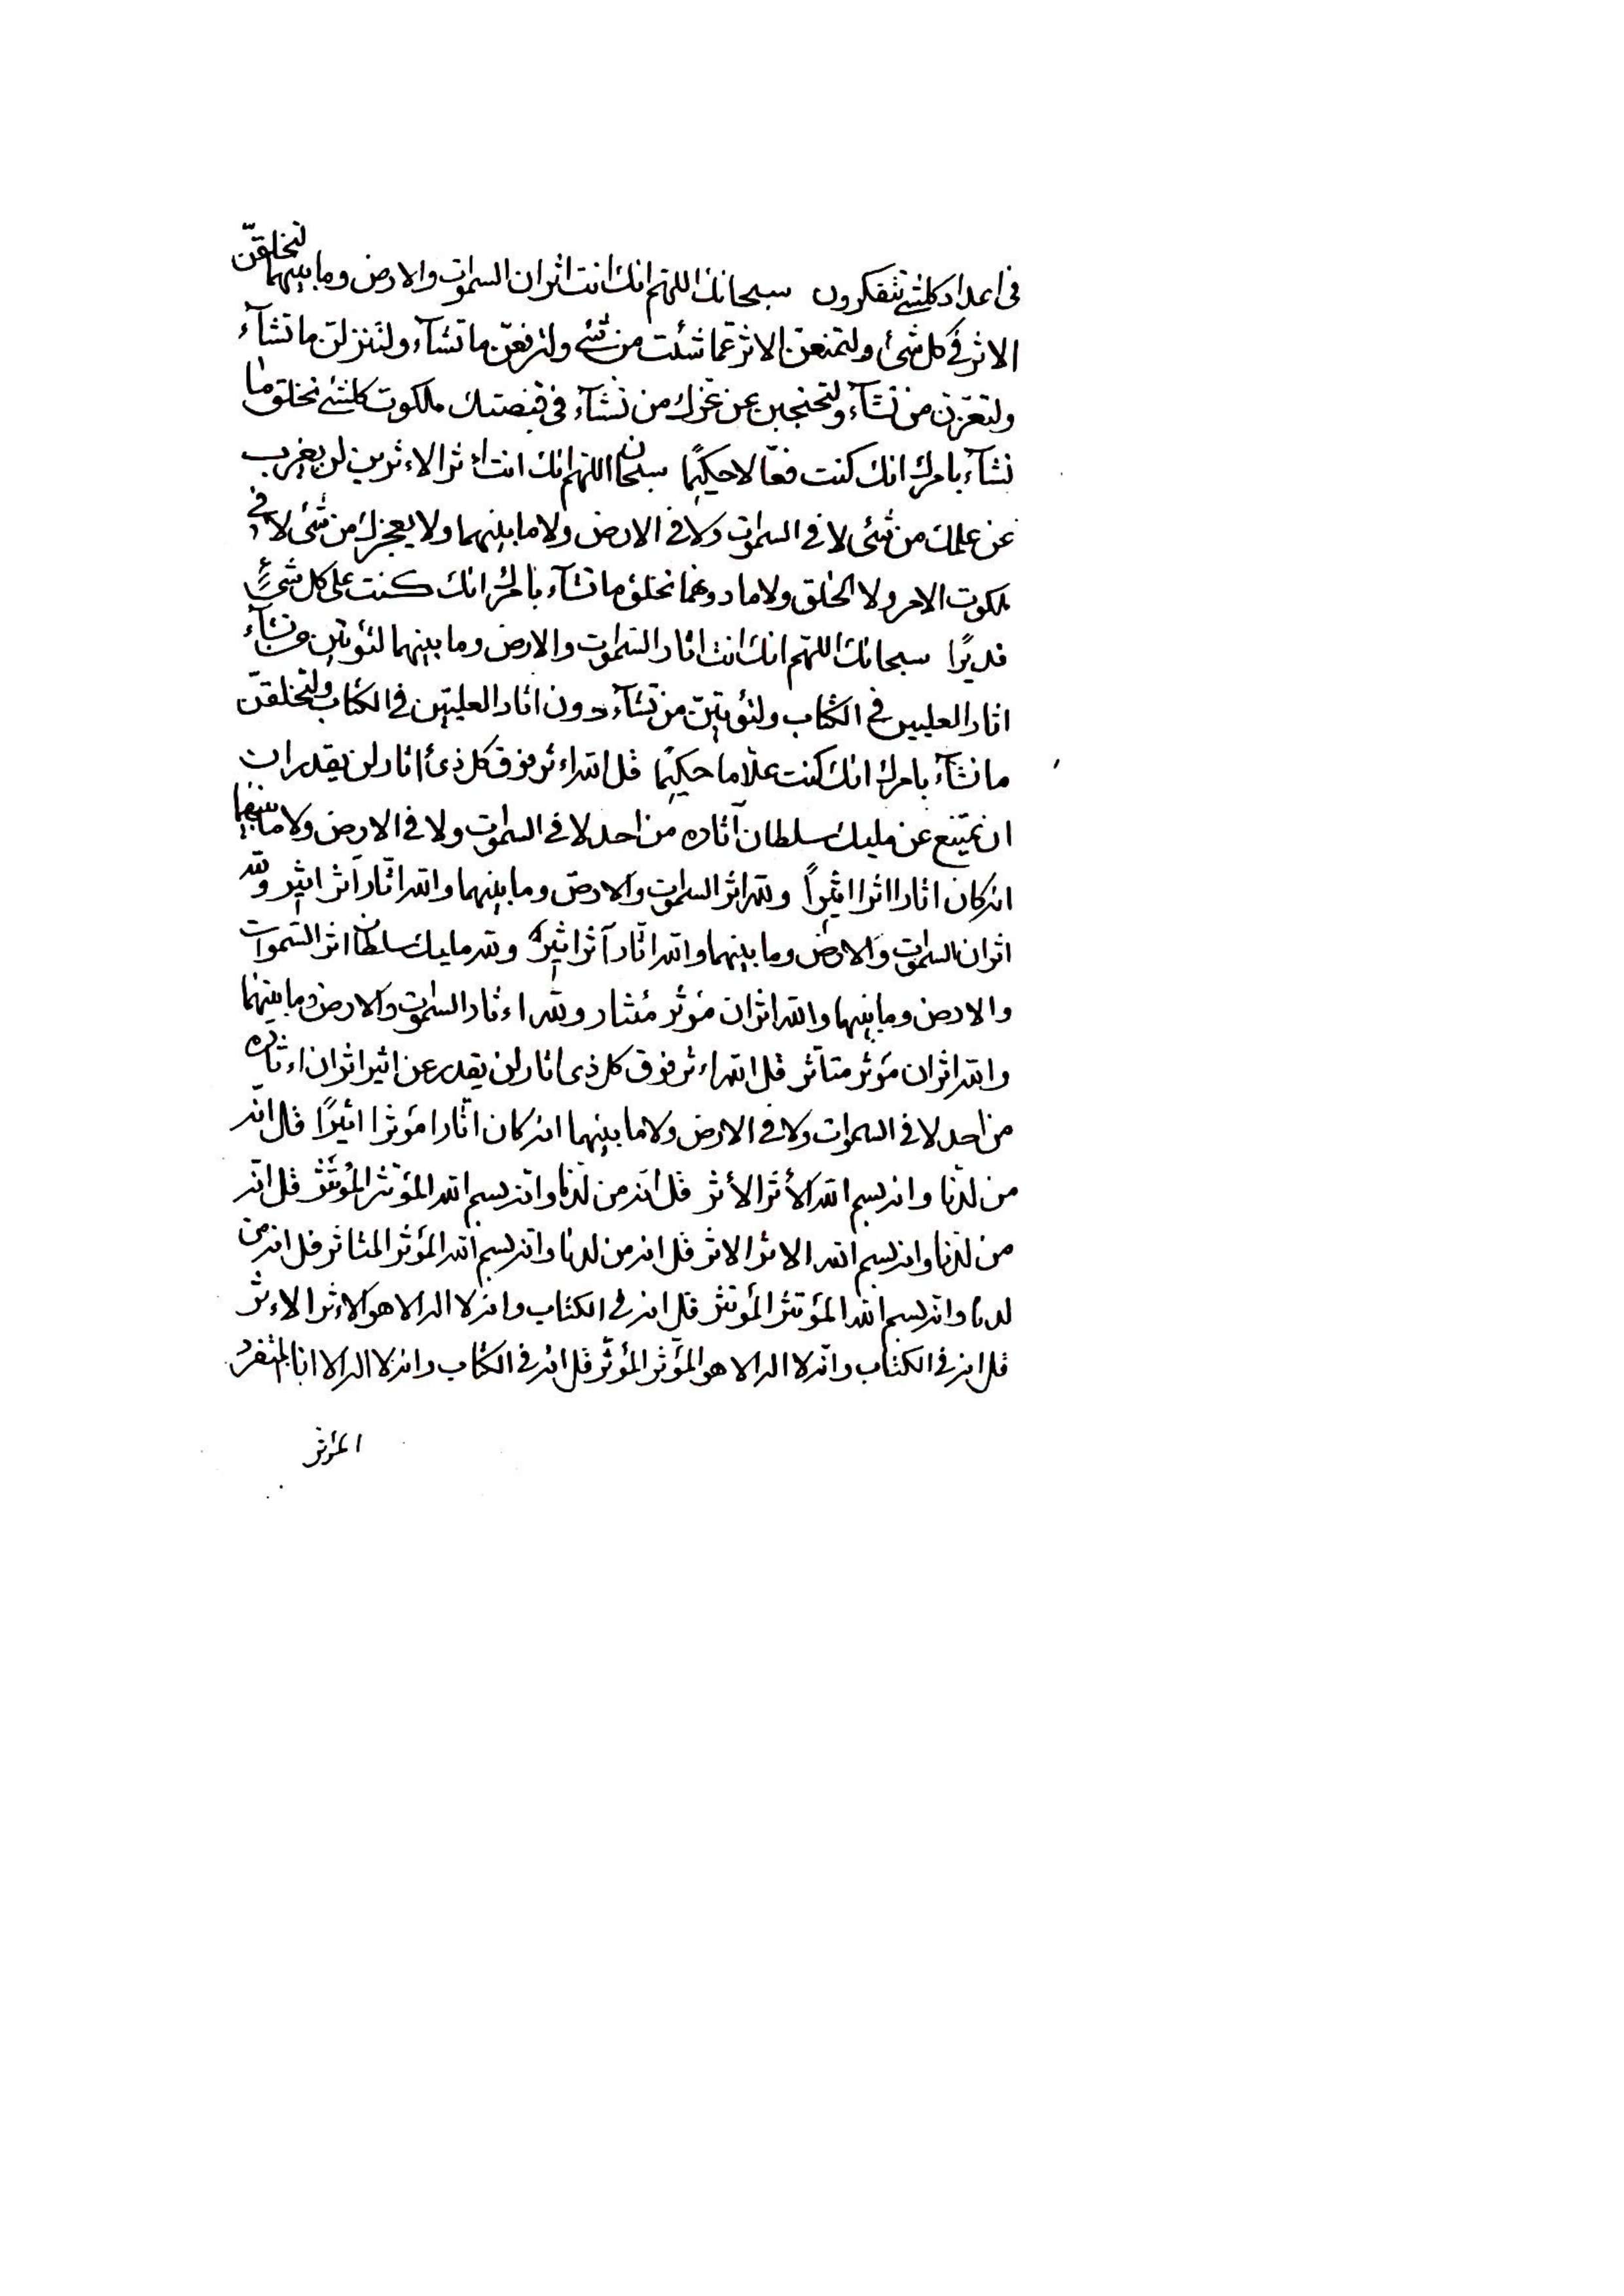 فی اعداد کلشیء تتفکرون سبحانک اللهم انک انت اثران السموات والارض وما بینهما لتخلقنّ
الاثر فی کل شیء ولتمنعنّ الاثر عما شئت من شیء ولترفعنّ ما تشآء ولتنزلنّ ما تشآء
ولتعزّزن من تشآء ولتحتجبن عن عزک من تشآء فی قبضتک ملکوت کلشیء تخلق ما
تشآء بامرک انک کنت فعّالا حکیمًا سبحان اللهم انک انت اءثر الاءثرین لن یعزب
عن علمک من شیء لا فی السموات ولا فی الارض ولا ما بینهما ولا یعجزک من شیء لا فی
ملکوت الامر ولا الخلق ولا ما دونهما تخلق ما تشآء بامرک انک کنت علی کل شیء
قدیرًا سبحانک اللهم انک انت اثار السموات والارض وما بینهما لتؤتین من تشآء
اثار العلیین فی الکتاب ولتؤتینّ من تشآء دون اثار العلیّین فی الکتاب ولتخلقنّ
ما تشآء بامرک انک کنت علّاما حکیمًا قل الله اءثر فوق کل ذی اثار لن یقدر ان
ان یمتنع عن ملیک سلطان آثاره من احد لا فی السموات ولا فی الارض ولا ما بینهما
انه کان اثارا اثرا اثیرًا ولله اثر السموات والارض وما بینهما والله اثّار آثر اثیر ولله
اثران السموات والارض وما بینهما والله اثّار آثر اثیر ولله ملیک سلطان اثر السّموات
والارض وما بینهما والله اثران مؤثر مئتثار ولله اءثار السموات والارض وما بینهما
والله اثران مؤثر متآثر قل الله اءثر فوق کل ذی اثار لن یقدر عن اثیر اثران اءثاره
من احد لا فی السموات ولا فی الارض ولا ما بینهما انه کان اثّارا مؤثرا اثیرًا قل انّه
من لدنا وانه بسم الله الأثر الأثر قل انّه من لدنّا وانه بسم الله المؤتثر المؤتثر قل انّه
من لدنّا وانه بسم الله الاثر الاثر قل انه من لدنا وانه بسم الله المؤثر المتاثر قل انه من
لدنا وانه بسم الله المؤتثر المؤتثر قل انه فی الکتاب وانه لا اله الا هو الاءثر الاءثر
قل انه فی الکتاب وانّه لا اله الا هو المؤثر المؤثر قل انه فی الکتاب وانه لا اله الا انا المتفرد
المؤثر